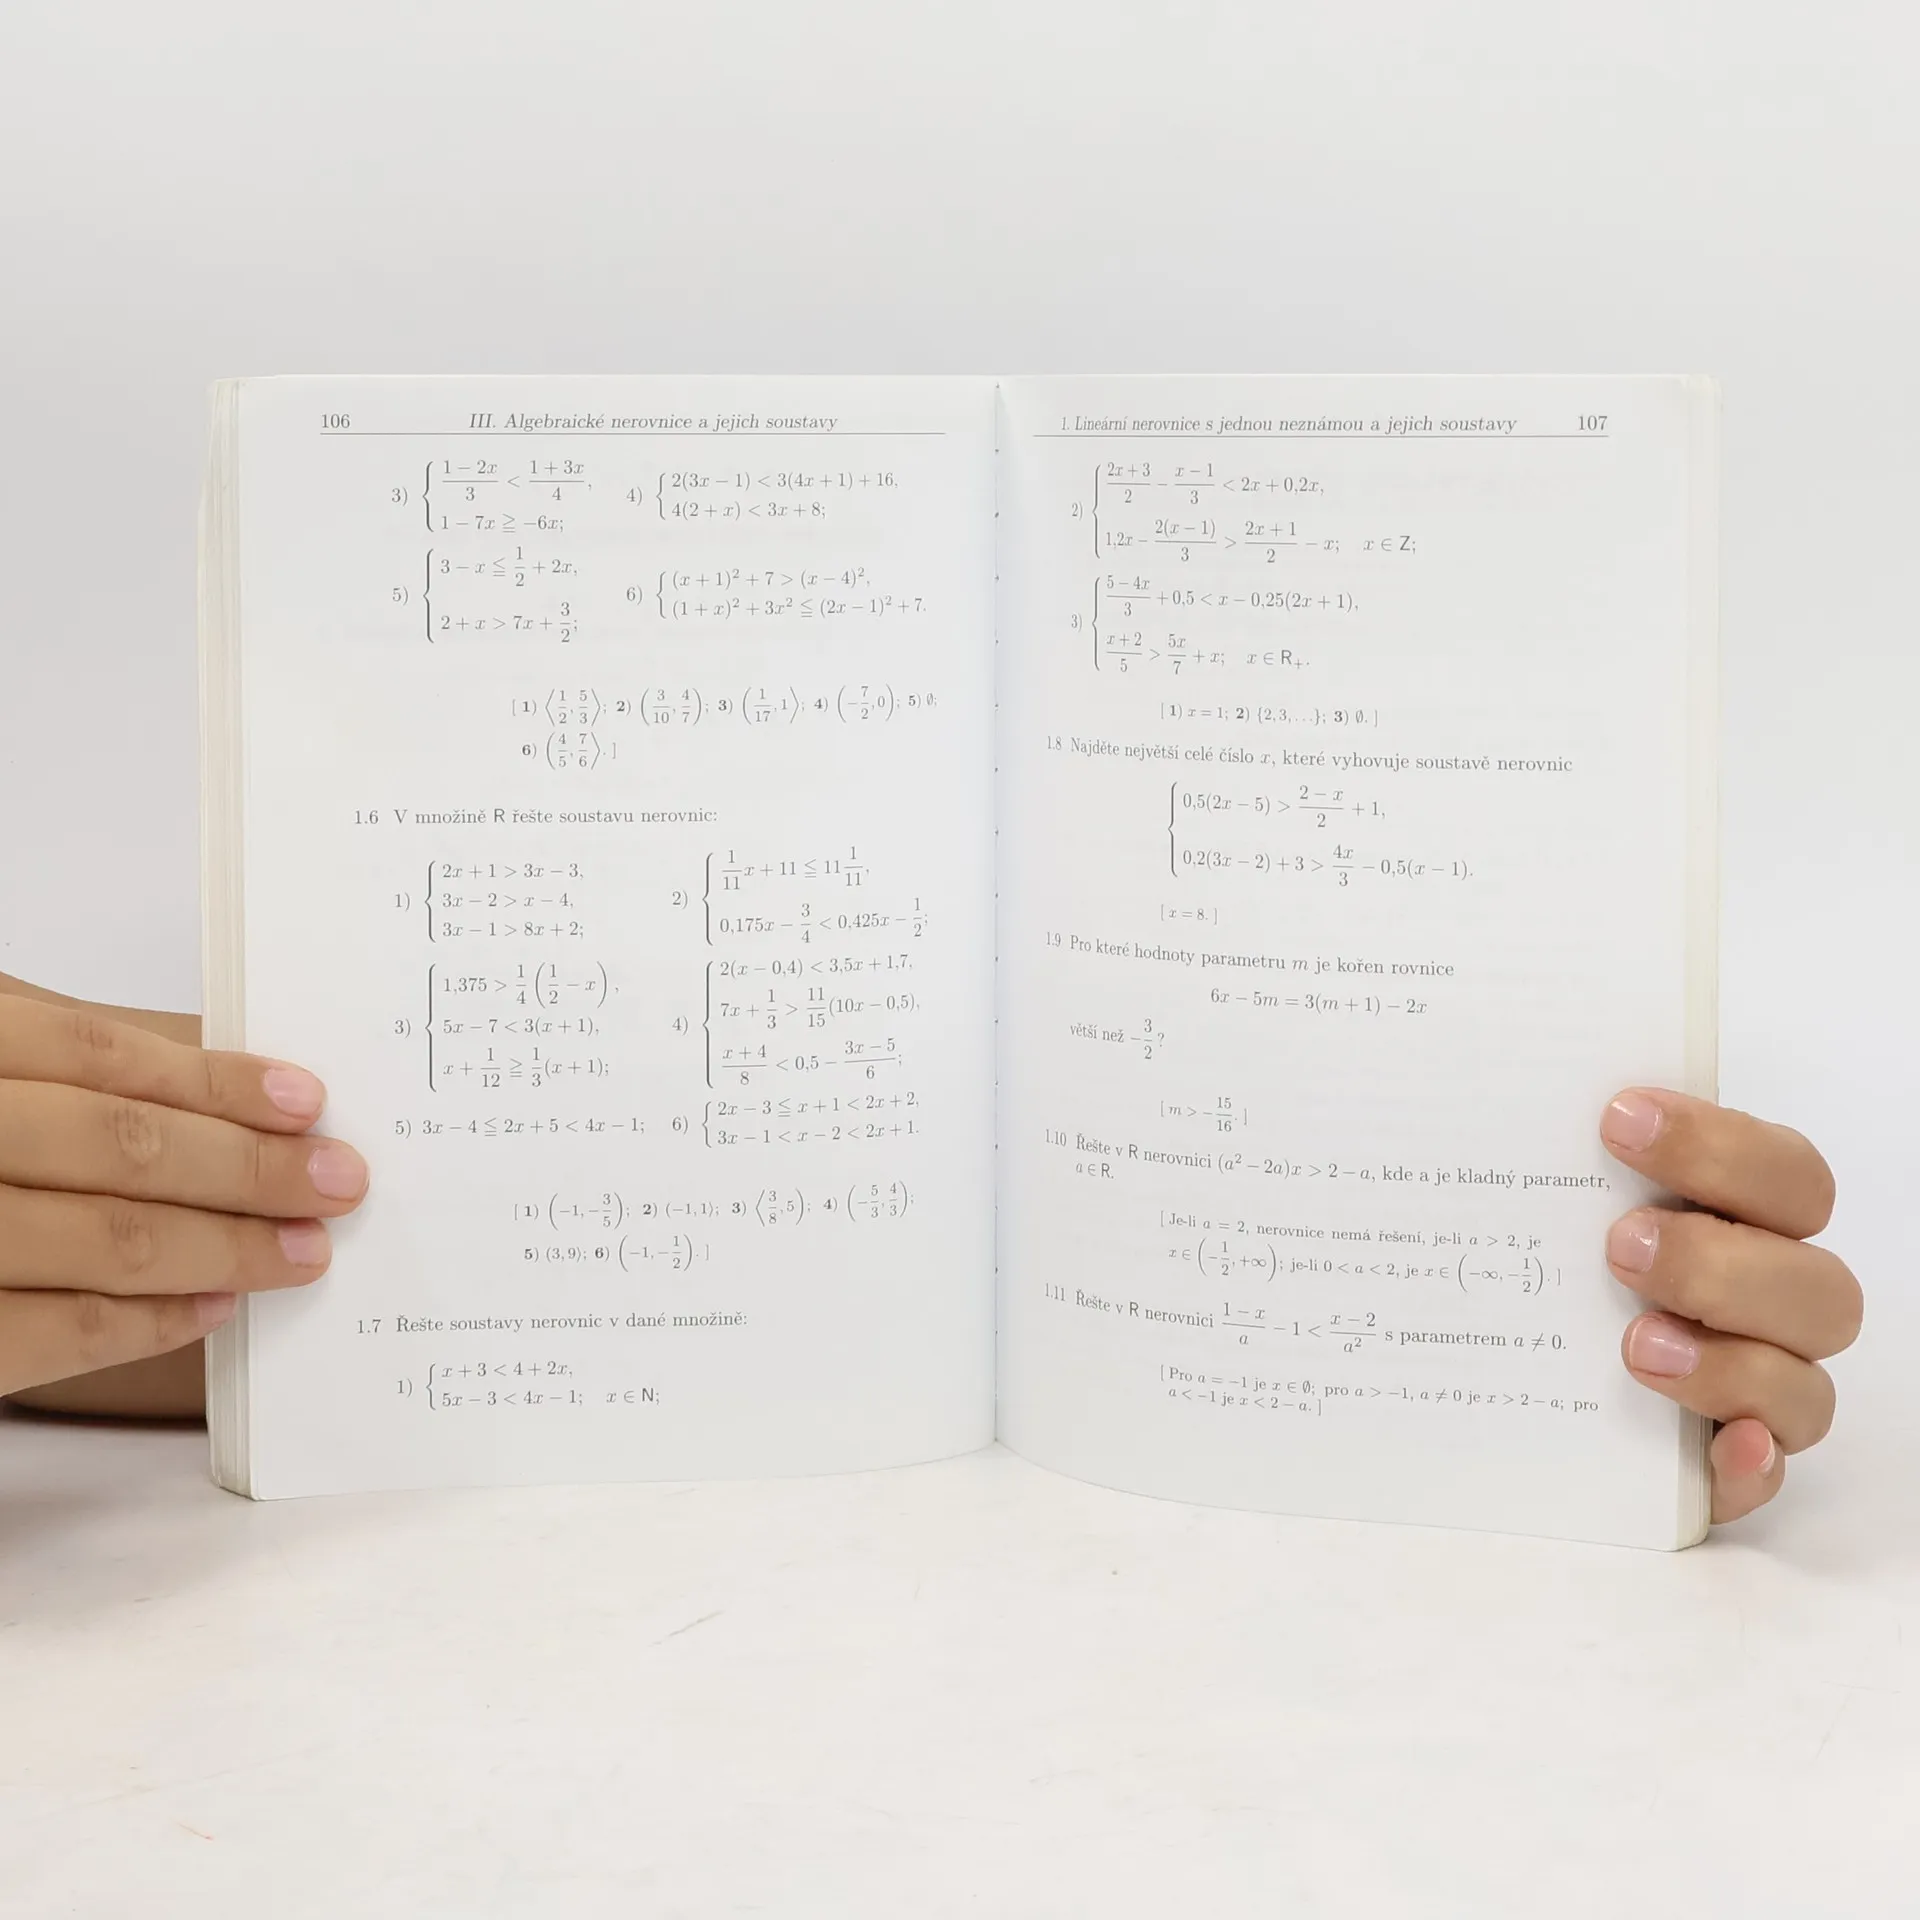 106 III. Algebraické nerovnice a jejich soustavy
3) { (1 − 2x)/3 < (1 + 3x)/4, 1 − 7x ≧ −6x; 4) { 2(3x − 1) < 3(4x + 1) + 16, 4(2 + x) < 3x + 8;
5) { 3 − x ≦ 1/2 + 2x, 2 + x > 7x + 3/2; 6) { (x + 1)² + 7 > (x − 4)², (1 + x)² + 3x² ≦ (2x − 1)² + 7.
[ 1) ⟨1/2, 5/3⟩; 2) (3/10, 4/7); 3) (1/17, 1⟩; 4) (−7/2, 0); 5) ∅;
6) (4/5, 7/6⟩. ]
1.6 V množině R řešte soustavu nerovnic:
1) { 2x + 1 > 3x − 3, 3x − 2 > x − 4, 3x − 1 > 8x + 2; 2) { 1/11 x + 11 ≦ 11 1/11, 0,175x − 3/4 < 0,425x − 1/2;
3) { 1,375 > 1/4 (1/2 − x), 5x − 7 < 3(x + 1), x + 1/12 ≧ 1/3 (x + 1); 4) { 2(x − 0,4) < 3,5x + 1,7, 7x + 1/3 > 11/15 (10x − 0,5), (x + 4)/8 < 0,5 − (3x − 5)/6;
5) 3x − 4 ≦ 2x + 5 < 4x − 1; 6) { 2x − 3 ≦ x + 1 < 2x + 2, 3x − 1 < x − 2 < 2x + 1.
[ 1) (−1, −3/5); 2) (−1, 1⟩; 3) ⟨3/8, 5); 4) (−5/3, 4/3);
5) (3, 9⟩; 6) (−1, −1/2). ]
1.7 Řešte soustavy nerovnic v dané množině:
1) { x + 3 < 4 + 2x, 5x − 3 < 4x − 1; x ∈ N;
1. Lineární nerovnice s jednou neznámou a jejich soustavy 107
2) { (2x + 3)/2 − (x − 1)/3 < 2x + 0,2x, 1,2x − 2(x − 1)/3 > (2x + 1)/2 − x; x ∈ Z;
3) { (5 − 4x)/3 + 0,5 < x − 0,25(2x + 1), (x + 2)/5 > 5x/7 + x; x ∈ R₊.
[ 1) x = 1; 2) {2, 3, …}; 3) ∅. ]
1.8 Najděte největší celé číslo x, které vyhovuje soustavě nerovnic
{ 0,5(2x − 5) > (2 − x)/2 + 1,
0,2(3x − 2) + 3 > 4x/3 − 0,5(x − 1).
[ x = 8. ]
1.9 Pro které hodnoty parametru m je kořen rovnice
6x − 5m = 3(m + 1) − 2x
větší než −3/2?
[ m > −15/16. ]
1.10 Řešte v R nerovnici (a² − 2a)x > 2 − a, kde a je kladný parametr,
a ∈ R.
[ Je-li a = 2, nerovnice nemá řešení, je-li a > 2, je
x ∈ (−1/2, +∞); je-li 0 < a < 2, je x ∈ (−∞, −1/2). ]
1.11 Řešte v R nerovnici (1 − x)/a − 1 < (x − 2)/a² s parametrem a ≠ 0.
[ Pro a = −1 je x ∈ ∅; pro a > −1, a ≠ 0 je x > 2 − a; pro
a < −1 je x < 2 − a. ]